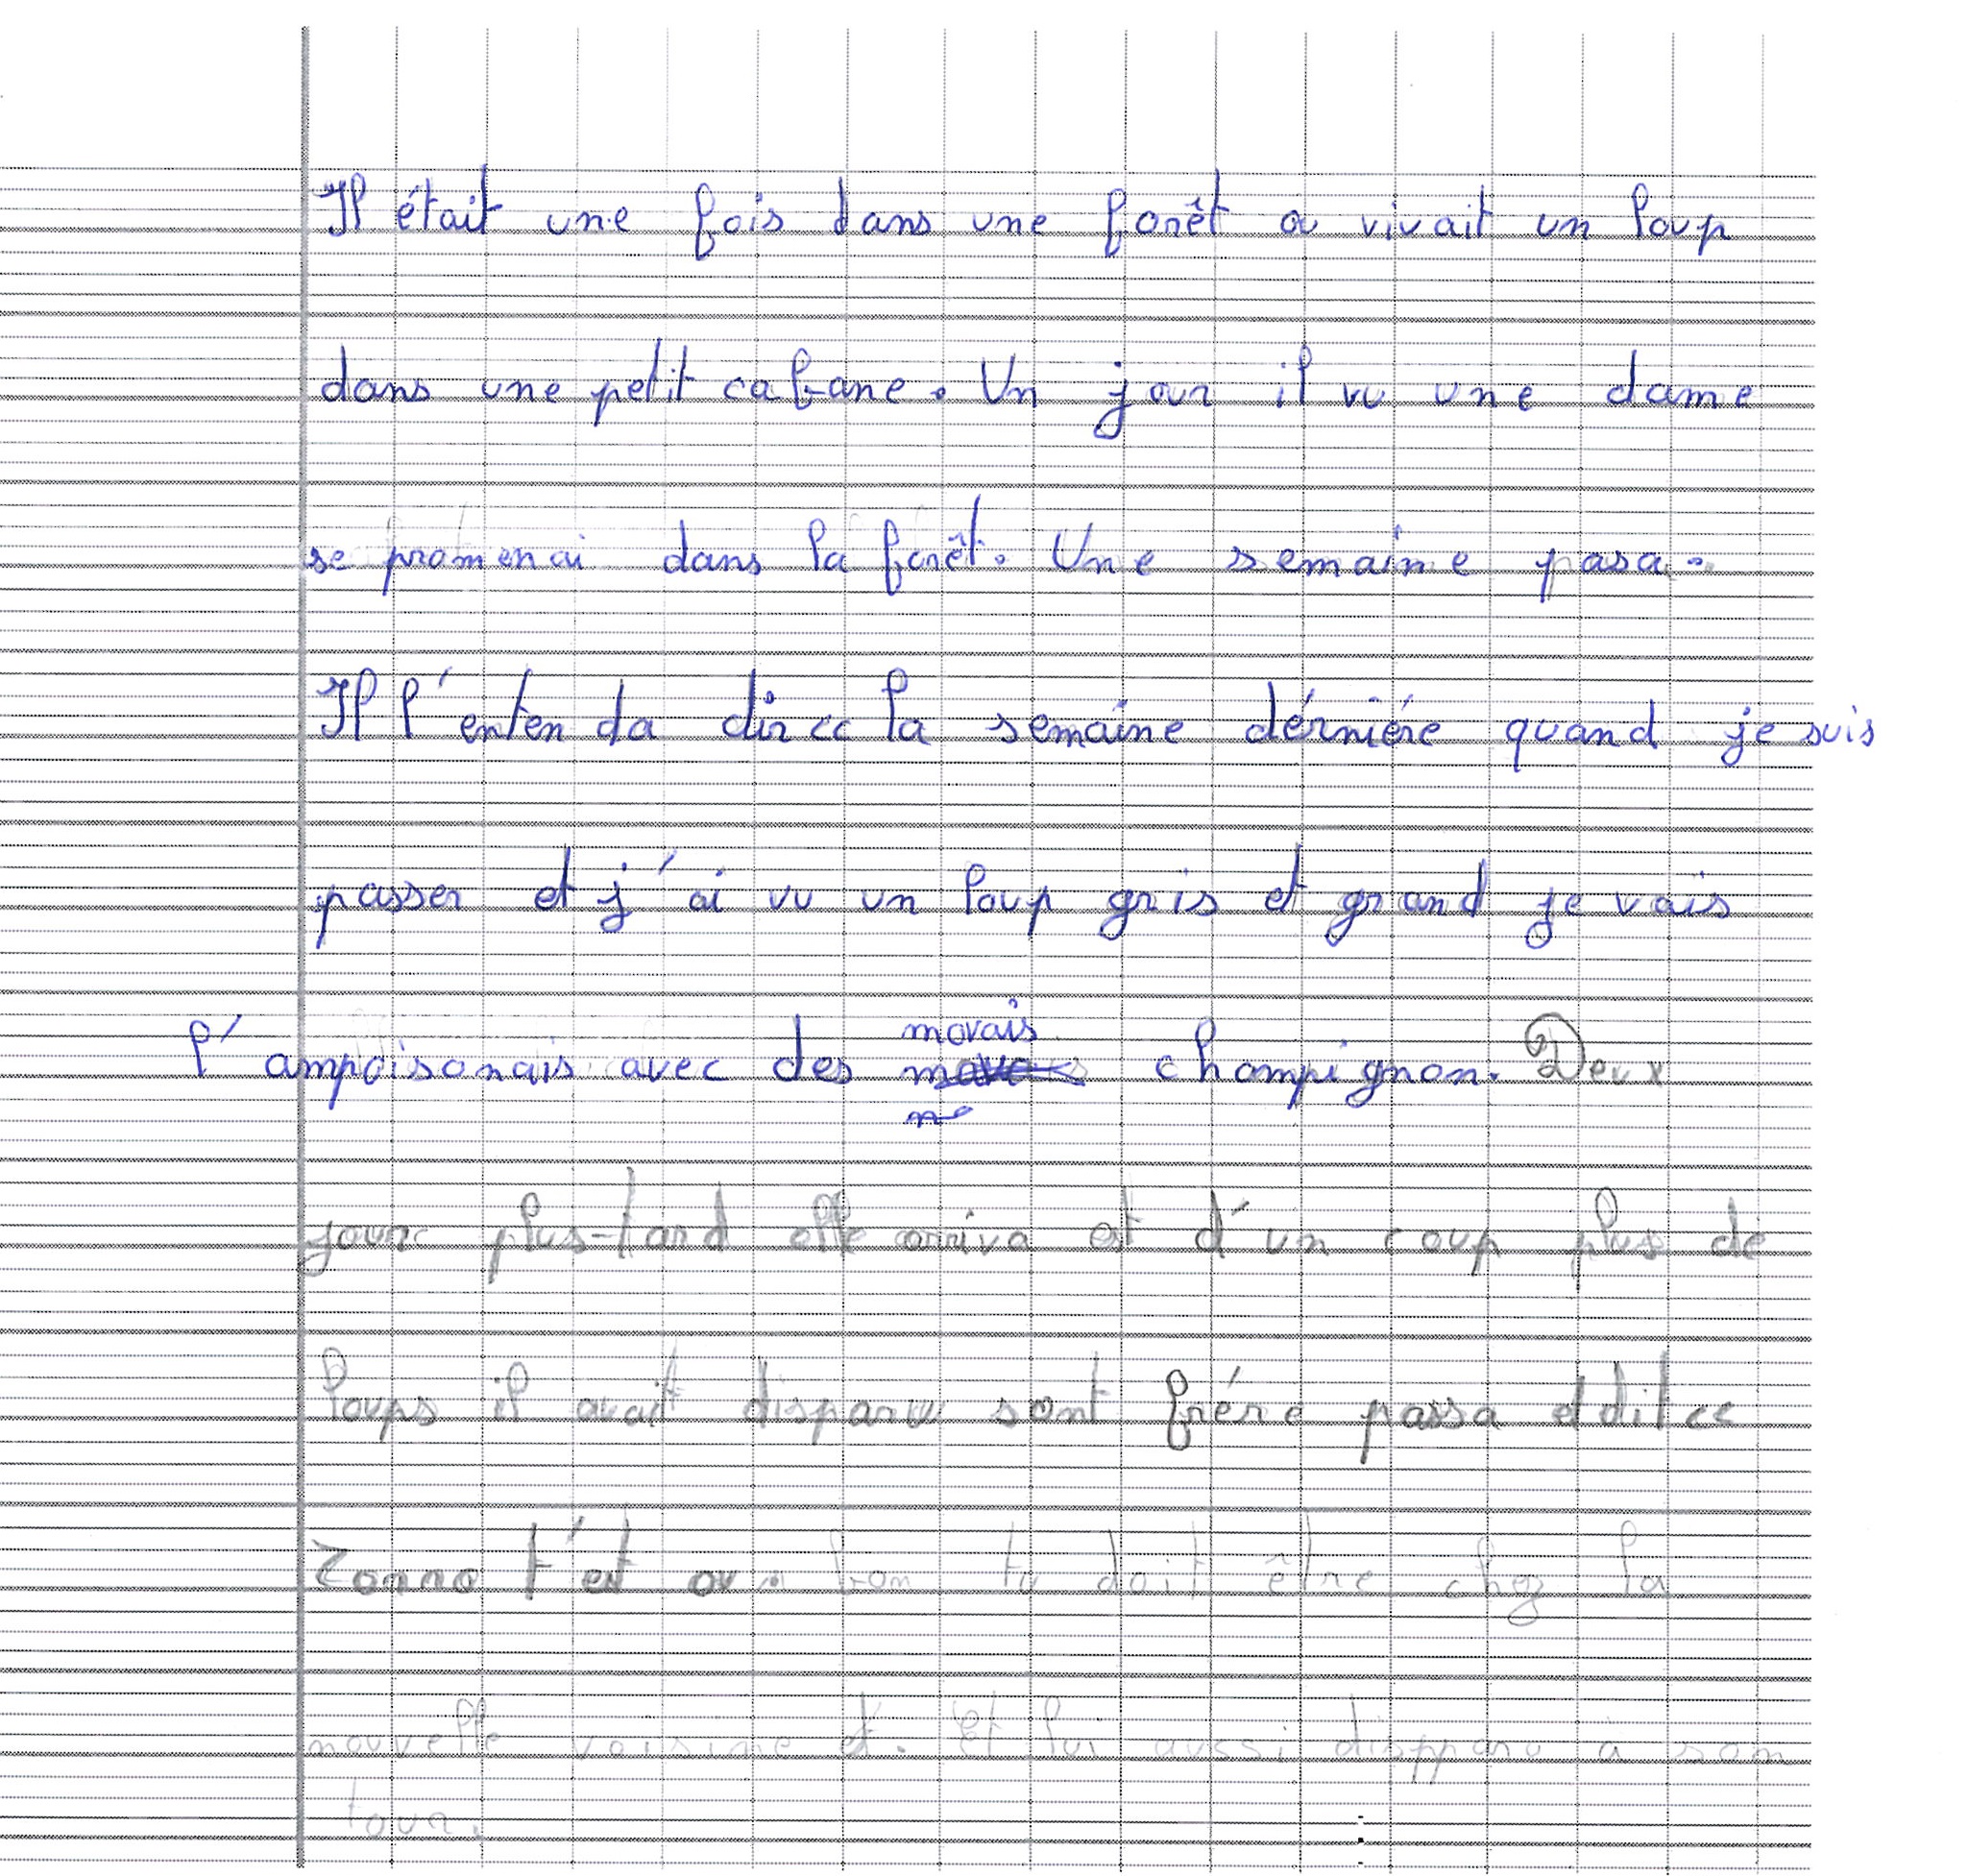 Il était une fois dans une forêt ou vivait un loup
dans une petit cabane. Un jour il vu une dame
se promenai dans la forêt. Une semaine pasa.
Il l'enten da dire la semaine dérniére quand je suis
passer et j'ai vu un loup gris et grand je vais
l'ampoisonais avec des movais champignon. Deux
jour plus-tard elle arriva et d'un coup plus de
loups il avait disparu sont frére passa et dit
Zonno t'et ou bon tu doit être chez la
nouvelle voisine et. Et lui aussi dispparu a son
tour.